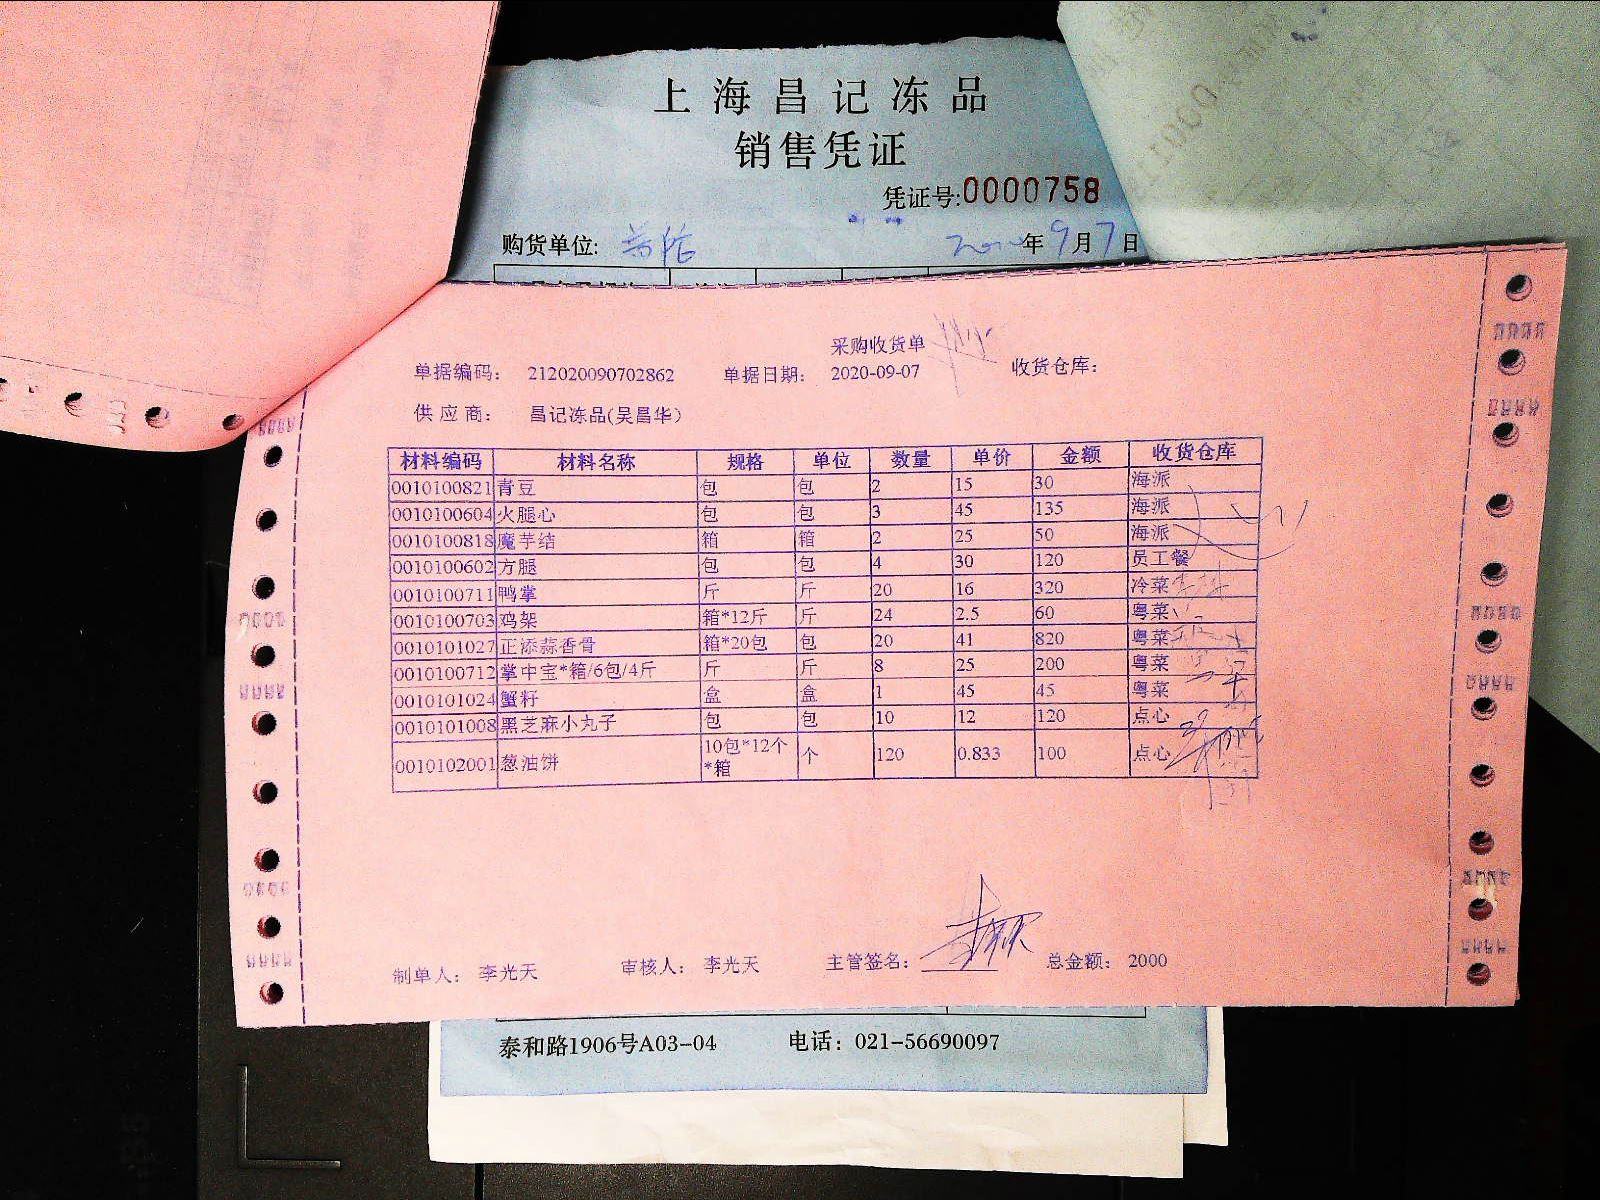 上海昌记冻品
销售凭证
凭证号:0000758
购货单位: 年9月7日
采购收货单
单据编码: 212020090702862 单据日期: 2020-09-07 收货仓库:
供应商: 昌记冻品(吴昌华)
材料编码 材料名称 规格 单位 数量 单价 金额 收货仓库
0010100821 青豆 包 包 2 15 30 海派
0010100604 火腿心 包 包 3 45 135 海派
0010100818 魔芋结 箱 箱 2 25 50 海派
0010100602 方腿 包 包 4 30 120 员工餐
0010100711 鸭掌 斤 斤 20 16 320 冷菜
0010100703 鸡架 箱*12斤 斤 24 2.5 60 粤菜
0010101027 正添蒜香骨 箱*20包 包 20 41 820 粤菜
0010100712 掌中宝*箱/6包/4斤 斤 斤 8 25 200 粤菜
0010101024 蟹籽 盒 盒 1 45 45 粤菜
0010101008 黑芝麻小丸子 包 包 10 12 120 点心
0010102001 葱油饼 10包*12个*箱 个 120 0.833 100 点心
制单人: 李光天 审核人: 李光天 主管签名: 总金额: 2000
泰和路1906号A03-04 电话: 021-56690097